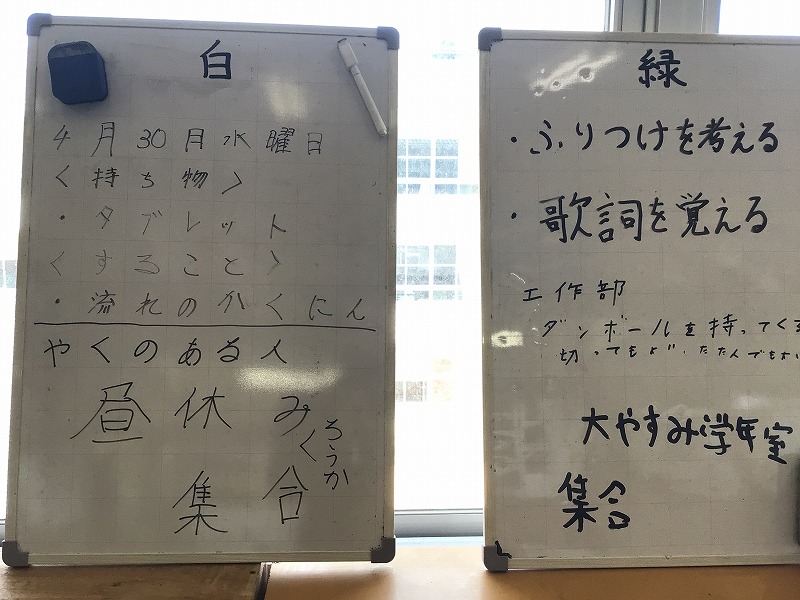 白
4月30月水曜日
〈持ち物〉
・タブレット
〈すること〉
・流れのかくにん
やくのある人
昼休み
ろうか
く
集合
緑
・ふりつけを考える
・歌詞を覚える
工作部
ダンボールを持ってくる
切ってもよし、たたんでもよい
大やすみ学年室
集合